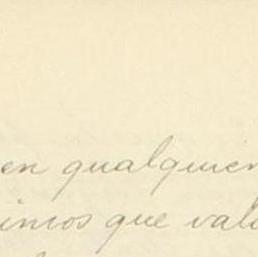 en qualquier
imos que val